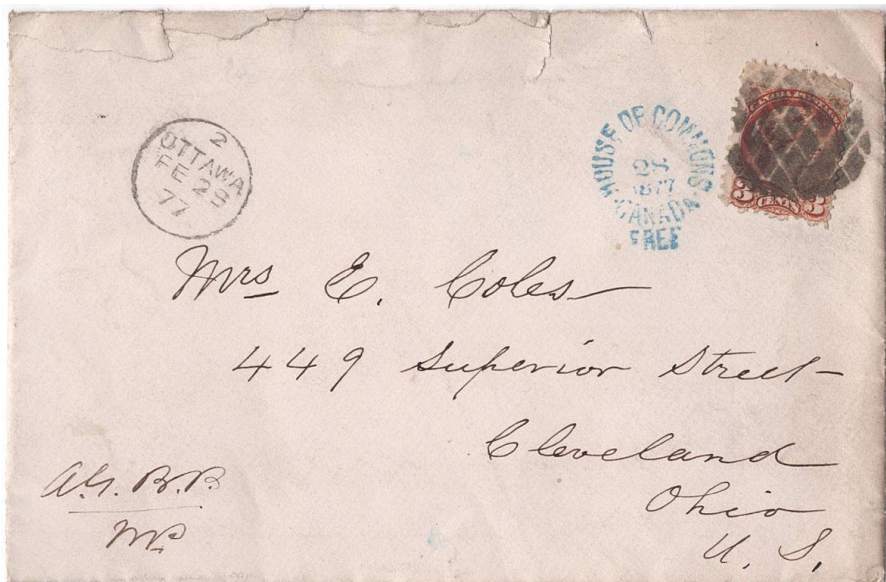 2
OTTAWA
FE 28
77
HOUSE OF COMMONS
28
1877
CANADA
FREE
3 CENTS 3
Mrs E. Coles
449 Superior Street
Cleveland
Ohio
U. S.
A.G.B.B.
MP